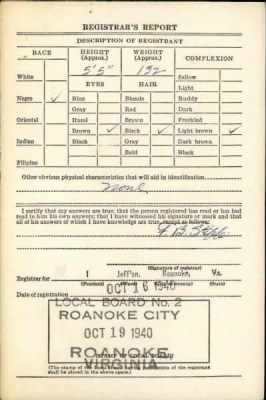 REGISTRAR'S REPORT
DESCRIPTION OF REGISTRANT
RACE HEIGHT (Approx.) WEIGHT (Approx.) COMPLEXION
5'5" 132
White Sallow
EYES HAIR Light
Negro ✓ Blue Blonde Ruddy
Gray Red Dark
Oriental Hazel Brown Freckled
Brown ✓ Black ✓ Light brown ✓
Indian Black Gray Dark brown
Bald Black
Filipino
Other obvious physical characteristics that will aid in identification
None
I certify that my answers are true; that the person registered has read or has had
read to him his own answers; that I have witnessed his signature or mark and that
all of his answers of which I have knowledge are true, except as follows:
(Signature of registrar)
Registrar for 1 Jeff'sn. Roanoke, Va.
(Precinct) (Ward) (City or county) (State)
Date of registration OCT 16 1940
LOCAL BOARD No. 2
ROANOKE CITY
OCT 19 1940
ROANOKE
VIRGINIA
(The stamp of the Local Board having jurisdiction of the registrant
shall be placed in the above space.)